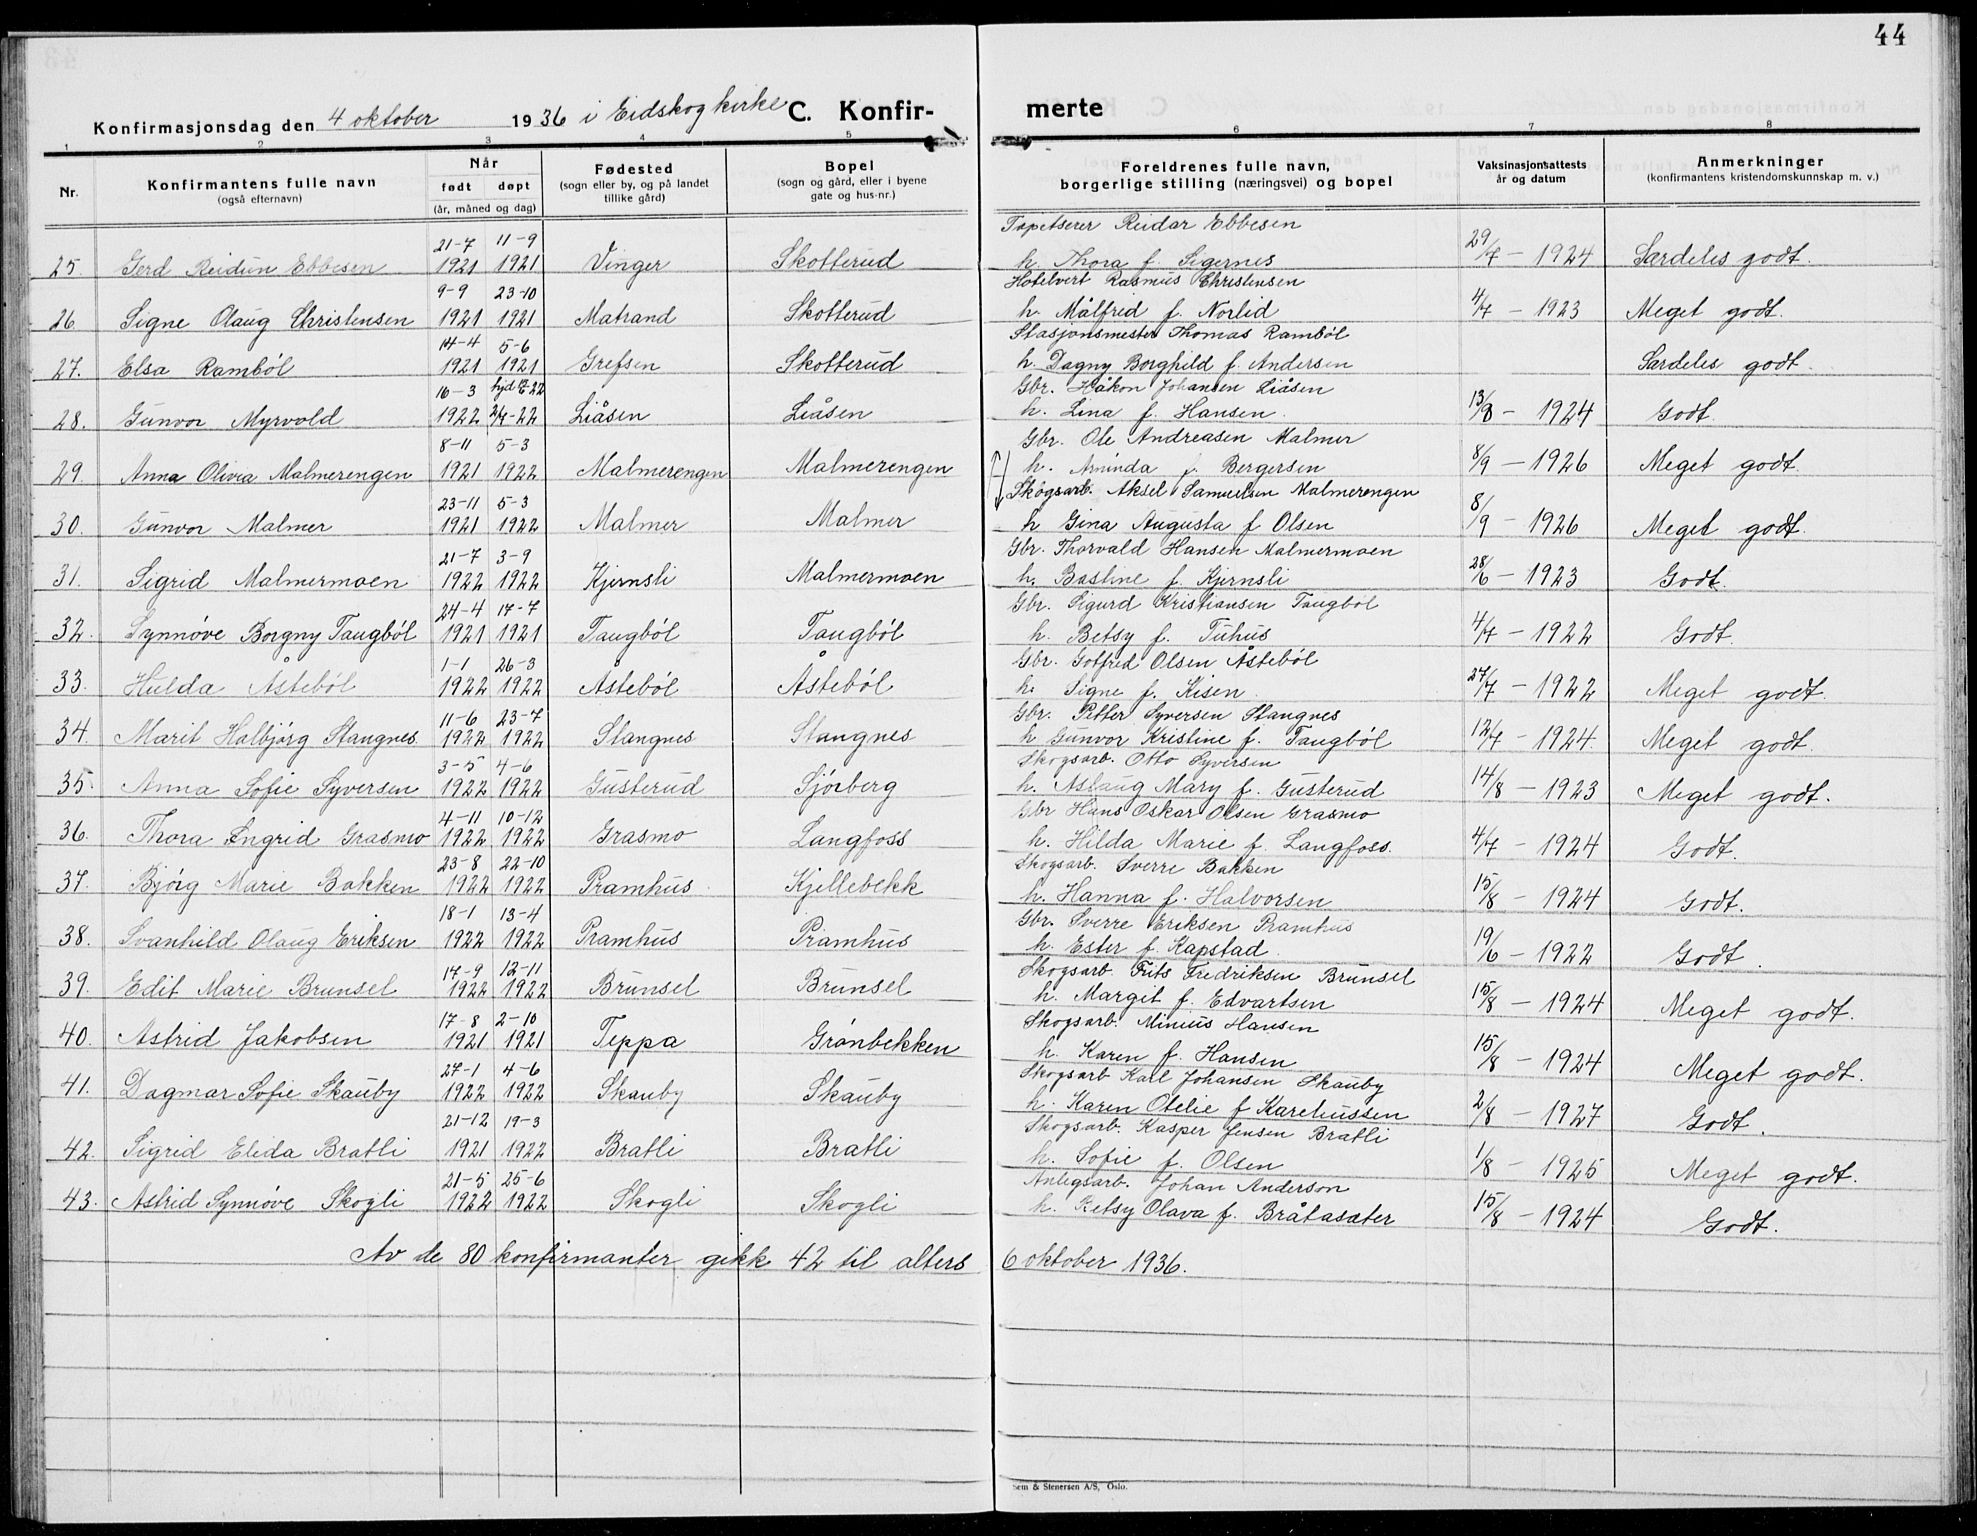 44
Konfirmasjonsdag den 4 oktober 1936 i Eidskog kirke C. Konfir- merte
1 2 3 4 5 6 7 8
Nr. Konfirmantens fulle navn (også efternavn) Når født døpt (år, måned og dag) Fødested (sogn eller by, og på landet tillike gård) Bopel (sogn og gård, eller i byene gate og hus-nr.) Foreldrenes fulle navn, borgerlige stilling (næringsvei) og bopel Vaksinasjonsattests år og datum Anmerkninger (konfirmantens kristendomskunnskap m. v.)
21-7 11-9 Tapetserer Reidar Ebbesen
25. Gerd Reidun Ebbesen 1921 1921 Vinger Skotterud h. Thora f. Sigernes 29/7 - 1924 Særdeles godt.
9-9 23-10 Hotelvert Rasmus Christensen
26. Signe Olaug Christensen 1921 1921 Matrand Skotterud h. Målfrid f. Norlid 4/7 - 1923 Meget godt.
14-4 5-6 Stasjonsmester Thomas Ramböl
27. Elsa Ramböl 1921 1921 Grefsen Skotterud h. Dagny Borghild f. Andersen Særdeles godt.
16-3 Gbr. Håkon Johansen Liåsen
28. Gunvor Myrvold 1922 2/7-22 Liåsen Liåsen h. Lina f. Hansen. 13/8 - 1924 Godt.
8-11 5-3 Gbr. Ole Andreasen Malmer
29. Anna Olivia Malmerengen 1921 1922 Malmerengen Malmerengen h. Aminda f. Bergersen 8/9 - 1926 Meget godt.
23-11 5-3 Skogsarb. Aksel Samuelsen Malmerengen
30. Gunvor Malmer 1921 1922 Malmer Malmer h Gina Augusta f Olsen 8/9 - 1926 Meget godt.
21-7 3-9 Gbr. Thorvald Hansen Malmermoen
31. Sigrid Malmermoen 1922 1922 Kjernsli Malmermoen h. Bastine f. Kjernsli 28/6 - 1923 Godt.
24-4 17-7 Gbr. Sigurd Kristiansen Taugböl
32. Synnöve Borgny Taugböl 1921 1921 Taugböl Taugböl h. Betsy f. Tuhus 4/7 - 1922 Godt.
1-1 26-3 Gbr. Gotfred Olsen Åsteböl
33. Hulda Åsteböl 1922 1922 Åsteböl Åsteböl h. Signe f. Kisen. 27/7 - 1922 Meget godt.
11-6 23-7 Gbr. Petter Syversen Stangnes
34. Marit Halbjörg Stangnes. 1922 1922 Stangnes Stangnes h Gunvor Kristine f. Taugböl 12/7 - 1924. Meget godt.
3-5 4-6 Skogsarb. Otto Syversen
35. Anna Sofie Syversen 1922 1922 Gusterud Sjöberg h. Aslaug Mary f. Gusterud 14/8 - 1923 Meget godt.
4-11 10-12 Gbr Hans Oskar Olsen Grasmo
36. Thora Ingrid Grasmo 1922 1922 Grasmo Langfoss h. Hilda Marie f. Langfoss. 4/7 - 1924 Godt.
23-8 22-10 Skogsarb. Sverre Bakken
37. Björg Marie Bakken 1922 1922 Pramhus Kjellebekk h. Hanna f. Halvorsen 15/8 - 1924 Godt.
18-1 13-4 Gbr. Sverre Eriksen Pramhus
38. Svanhild Olaug Eriksen 1922 1922 Pramhus Pramhus h. Ester f. Kapstad 19/6 - 1922 Godt.
17-9 12-11 Skogsarb. Frits Fredriksen Brunsel
39. Edit Marie Brunsel 1922 1922 Brunsel Brunsel h. Margit f. Edvartsen 15/8 - 1924 Meget godt.
17-8 2-10 Skogsarb. Minius Hansen
40. Astrid Jakobsen 1921 1921 Teppa Grönbekken h. Karen f. Hansen 15/8 - 1924 Meget godt.
27-1 4-6 Skogsarb Karl Johansen Skauby
41. Dagmar Sofie Skauby 1922 1922 Skauby Skauby h. Karen Otelie f Kareliussen 2/8 - 1927 Godt.
21-12 19-3 Skogsarb. Kasper Jensen Bratli
42. Sigrid Elida Bratli 1921 1922 Bratli Bratli h. Sofie f. Olsen 1/8 - 1925 Meget godt.
21-5 25-6 Anlegsarb. Johan Anderson
43. Astrid Synnöve Skogli 1922 1922 Skogli Skogli h. Betsy Olava f. Bråtasæter 15/8 - 1924 Godt.
Av de 80 konfirmanter gikk 42 til alters 6 oktober 1936.
Sem & Stenersen A/S, Oslo.